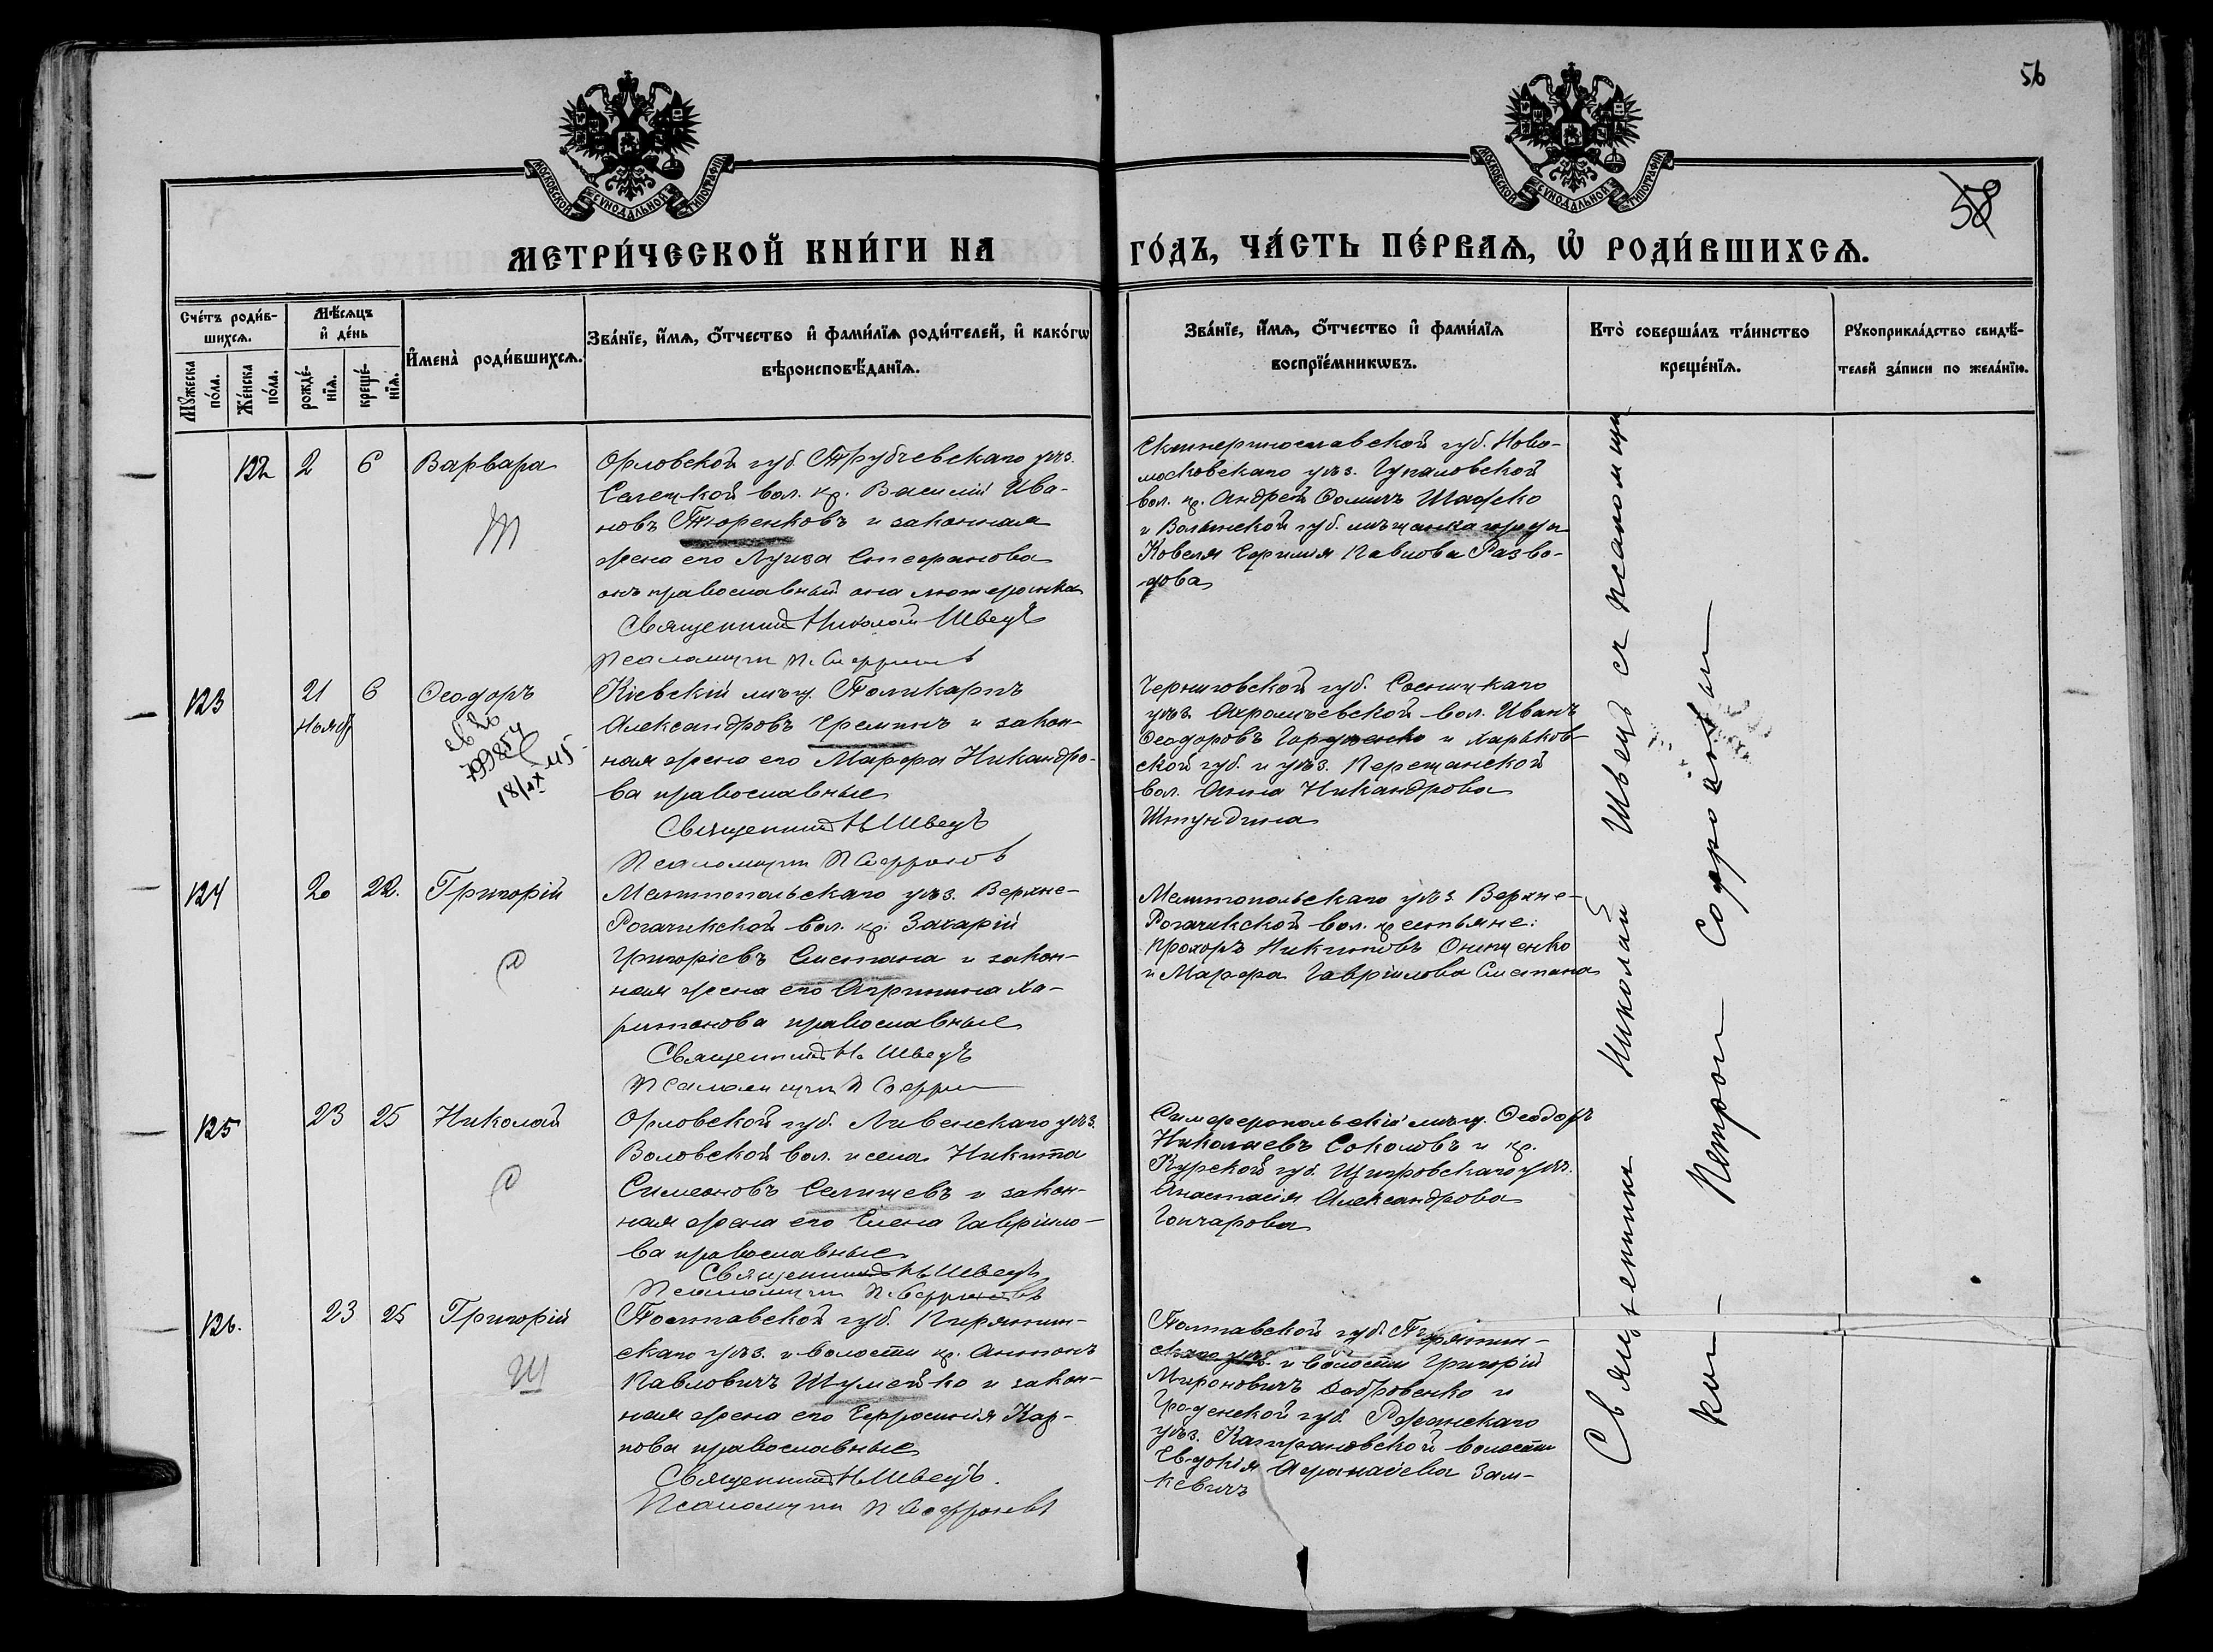 56
58
МОСКОВСКОЙ СѴНОДАЛЬНОЙ ТИПОГРАФІИ
МОСКОВСКОЙ СѴНОДАЛЬНОЙ ТИПОГРАФІИ
МЕТРИ́ЧЕСКОЙ КНИ́ГИ НА
ГО́ДЪ, ЧА́СТЬ ПЕ́РВАѦ, Ѡ҆ РОДИ́ВШИХСѦ.
Сче́тъ роди́в-
шихсѧ.
Мꙋжеска по́ла.
Же́нска по́ла.
Мѣ́сѧцъ и҆ де́нь
рожде́-
нїѧ.
креще́-
нїѧ.
И҆мена̀ роди́вшихсѧ.
Зва́нїе, и҆́мѧ, ѻ҆́тчество и҆ фами́лїѧ роди́телей, и҆ како́гѡ
вѣроисповѣ́данїѧ.
Зва́нїе, и҆́мѧ, ѻ҆́тчество и҆ фами́лїѧ
воспрїе́мникѡвъ.
Кто̀ соверша́лъ та́инство
креще́нїѧ.
Рꙋкоприкла́дство свидѣ́-
телей за́писи по жела́нїю.
122 2 6 Варвара
Орловской губ. Трубчевскаго уѣз.
Селецкой вол. кр. Василій Ива-
новъ Тюренковъ и законная
жена его Луиза Стефанова
онъ православный она лютеранка
Священникъ Николай Швецъ
Псаломщик П. Софронов
Екатеринославской губ. Ново-
московскаго уѣз. Гупаловской
вол. кр. Андрей Фомичъ
и Волынской губ. мѣщанка города
Ковеля Евфимія Павлова Разво-
дова
123 21 6 Ѳеодоръ
Ноябр
св во
799854
18/IX 45
Кіевскій мѣщ. Поликарпъ
Александровъ Ереминъ и закон-
ная жена его Марфа Никандро-
ва православные
Священникъ Н. Швецъ
Псаломщик П. Софронов
Черниговской губ. Сосницкаго
уѣз. вол. Иванъ
Ѳеодоровъ Гордиенко и Харьков-
ской губ. и уѣз.
вол. Анна Никандрова
124 20 22. Григорій
Мелитопольскаго уѣз. Верхне-
Рогачикской вол. кр. Захарій
Григоріевъ Сметана и закон-
ная жена его Агрипина Ха-
ритонова православные
Священникъ Н. Швецъ
Псаломщик П. Софрон
Мелитопольскаго уѣз. Верхне-
Рогачикской вол. крестьяне:
Прохоръ Никитовъ Онищенко
и Марфа Гавріилова Сметана
125 23 25 Николай
Орловской губ. Ливенскаго уѣз.
Воловской вол. и села Никита
Симеоновъ Селищевъ и закон-
ная жена его Елена Гавріило-
ва православные
Священникъ Н. Швецъ
Псаломщик П. Софроновъ
Симферопольскій мѣщ. Ѳеодоръ
Николаевъ Соколовъ и кр.
Курской губ. Щигровскаго уѣз.
Анастасія Александрова
Гончарова
126. 23 25 Григорій
Ш
Полтавской губ. Пирятин-
скаго уѣз. и волости кр. Антонъ
Павловичъ Шумейко и закон-
ная жена его Евфросинія Кар-
пова православные
Священникъ Н. Швецъ.
Псаломщик П. Софроновъ
Полтавской губ. Пирятин-
скаго уѣз. и волости Григорій
Мироновичъ и
Гродненской губ.
уѣз. волости
Евдокія Афанасіева Зам-
кевичъ
Священникъ Николай Швецъ съ псаломщи-
ком Петром Софроновым